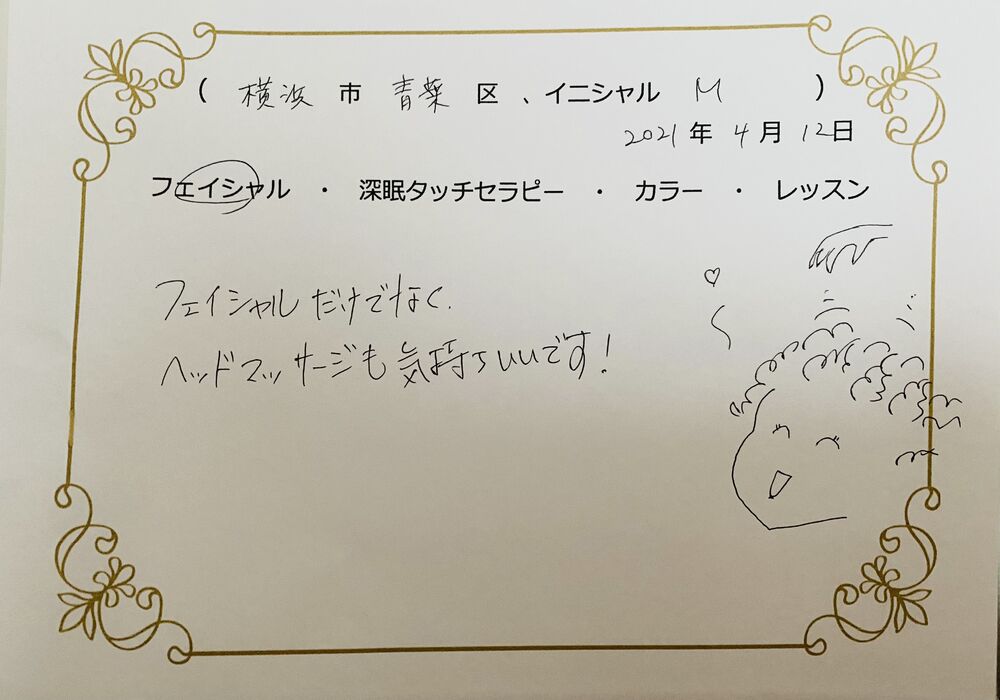 ( 横浜 市 青葉 区 、イニシャル M )
2021 年 4 月 12日
フェイシャル ・ 深眠タッチセラピー ・ カラー ・ レッスン
フェイシャルだけでなく、
ヘッドマッサージも気持ちいいです!